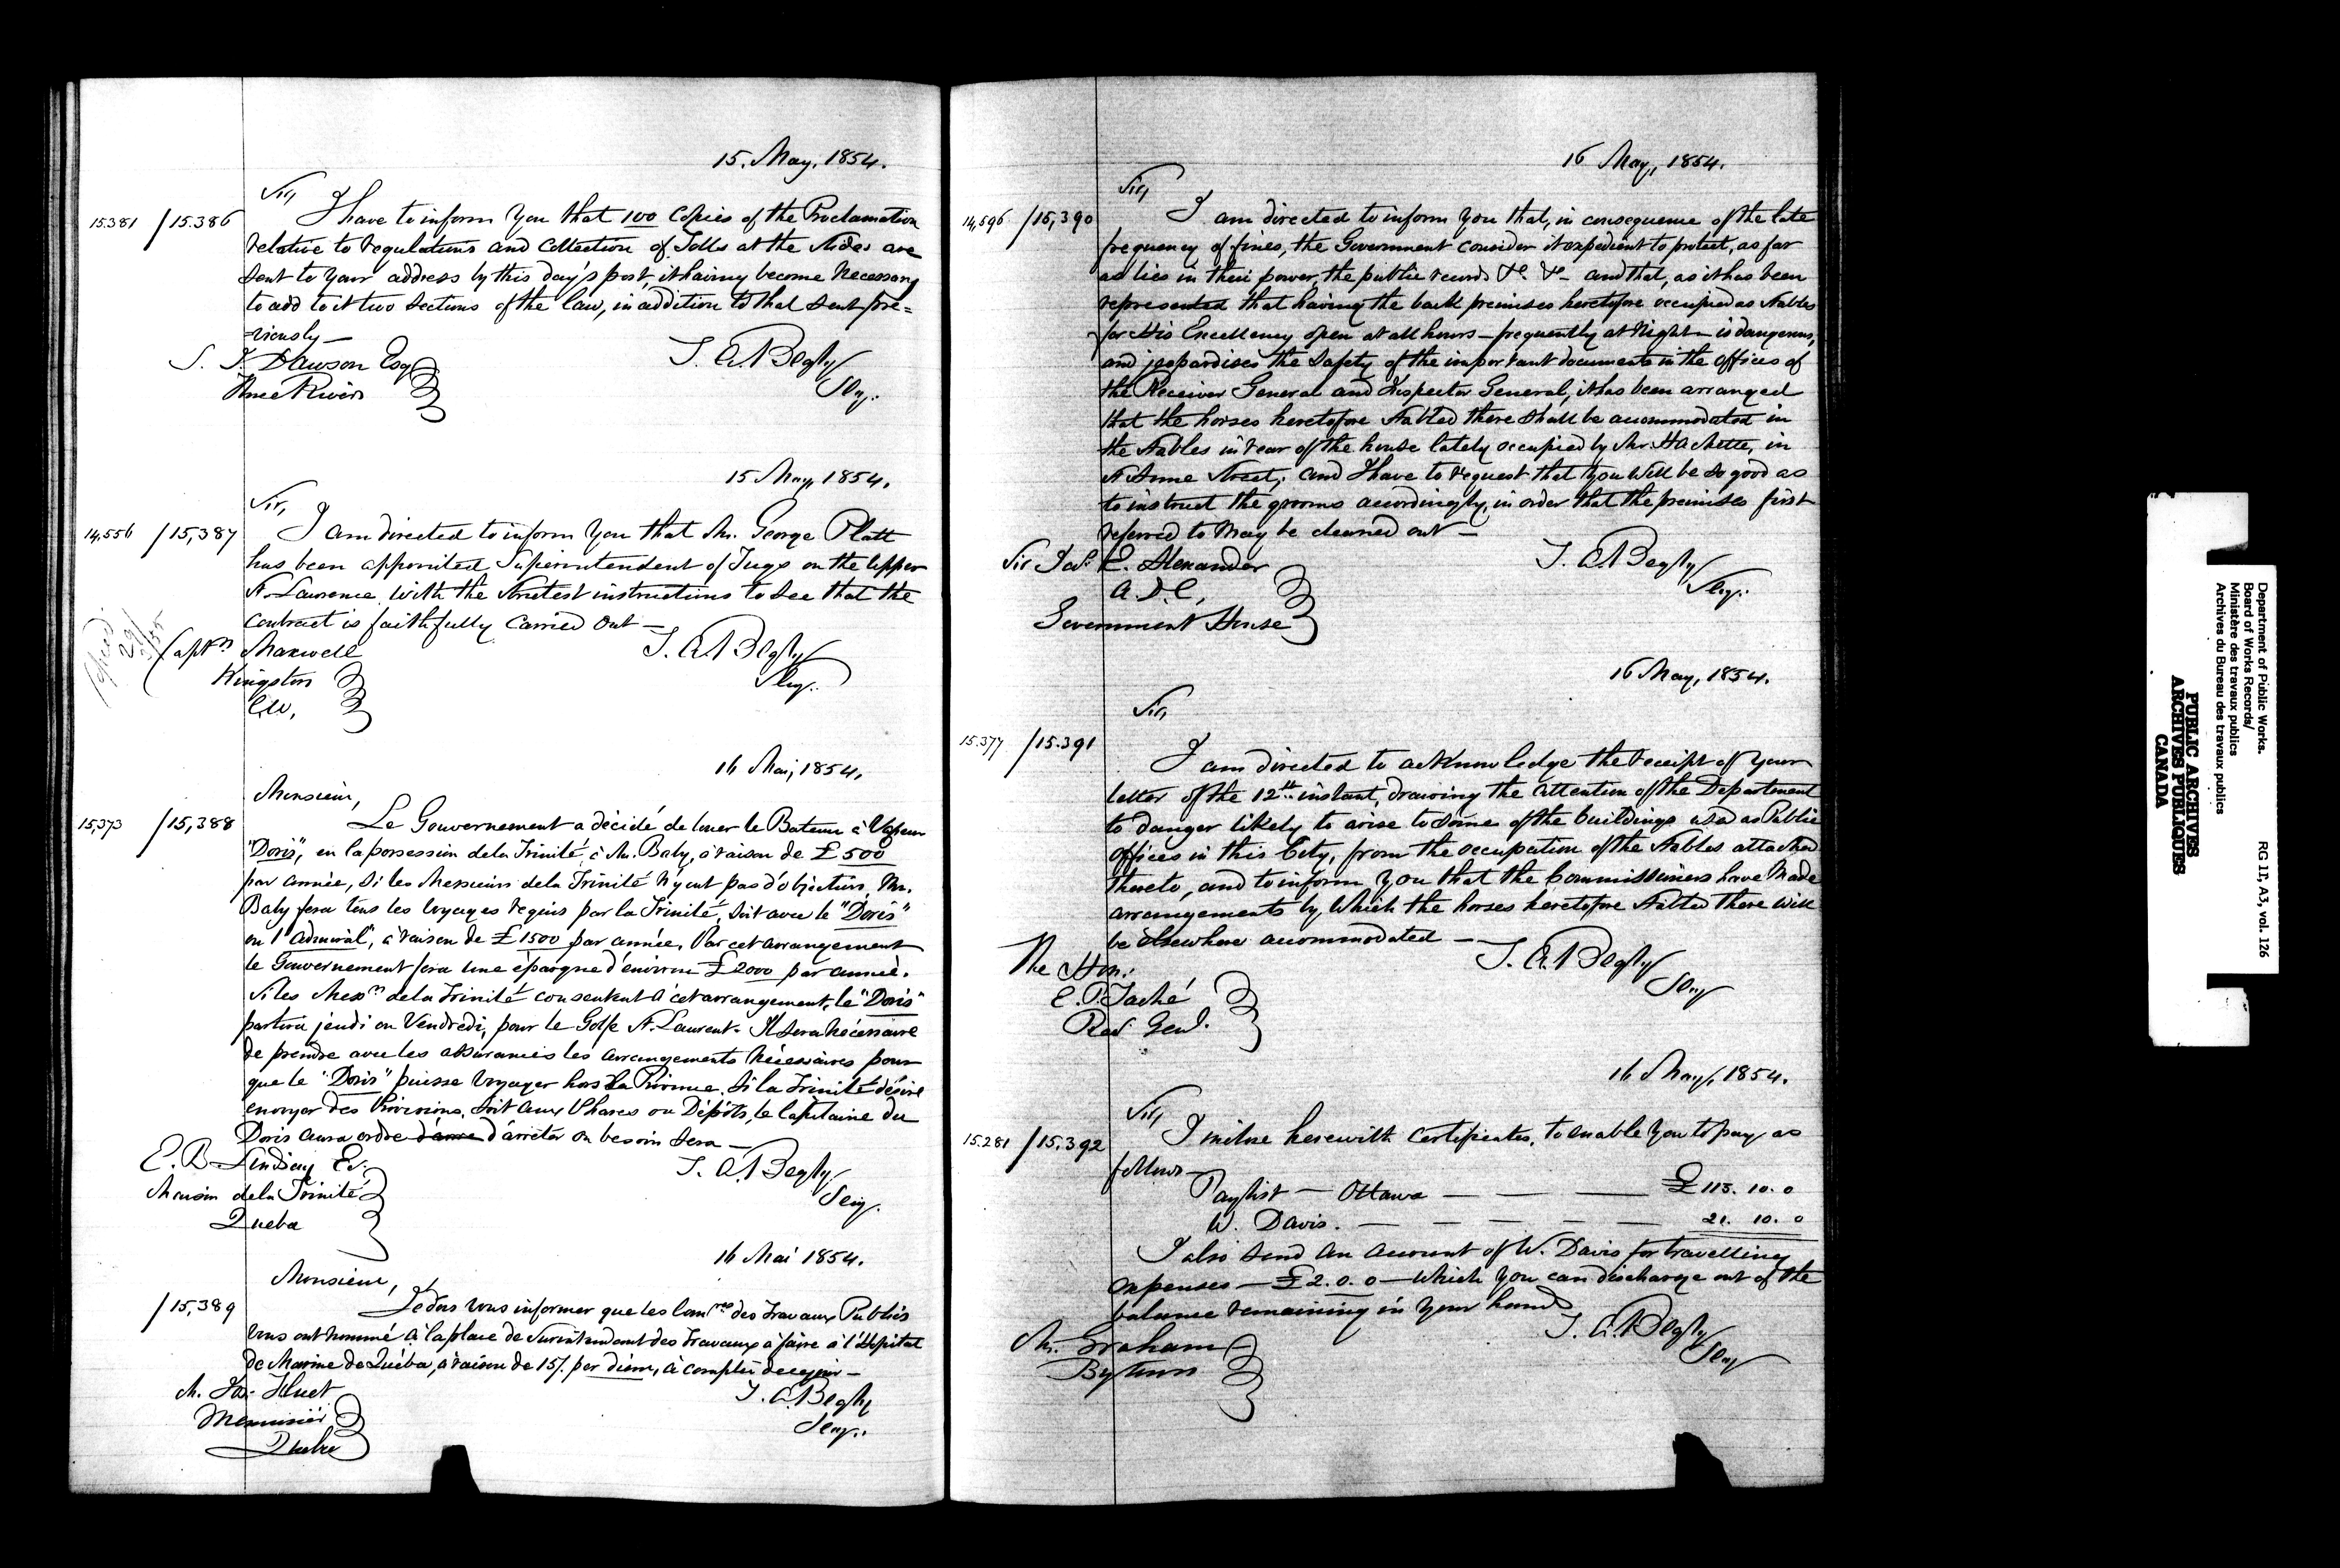 15. May, 1854.
Sir,
15.381 / 15.386 I have to inform you that 100 Copies of the Proclamation
relative to regulations and Collection of Tolls at the Slides are
sent to your address by this day's post, it having become necessary
to add to it two sections of the law, in addition to that sent pre=
=viously —
S. J. Dawson Esq
Three Rivers
T. A. Begly
Secy.
15 May, 1854.
Sir,
14,556 / 15,387 I am directed to inform you that Mr. George Platt
has been appointed Superintendent of Tugs on the Upper
St. Lawrence, with the strictest instructions to see that the
contract is faithfully carried out —
Captn Maxwell
Kingston
C.W,
T. A. Begly
Secy.
16 Mai, 1854.
Monsieur,
15,373 / 15,388 Le Gouvernement a décidé de louer le Bateau à Vapeur
"Doris", en la possession de la Trinité, à Mr. Baby, à raison de £500
par année, si les Messieurs de la Trinité n'y ont pas d'objection, Mr.
Baby fera tous les voyages requis par la Trinité, soit avec le "Doris"
ou l'"Admiral", à raison de £1500 par année. Par cet arrangement
le Gouvernement fera une épargne d'environ £2000 par année.
Si les Messrs de la Trinité consentent à cet arrangement, le "Doris"
partira jeudi ou Vendredi, pour le Golfe St. Laurent. Il sera nécessaire
de prendre avec les assurances les arrangements nécessaires pour
que le "Doris" puisse voyager hors la Province. Si la Trinité désire
envoyer des Provisions, soit aux Phares ou Dépôts, le Capitaine du
Doris aura ordre d'arrêter où besoin sera —
E. B. Lindsay Er.
Maison de la Trinité
Quebec
T. A. Begly
Secy.
16 Mai 1854.
Monsieur,
/ 15,389 Je dois vous informer que les Comres des Travaux Publics
vous ont nommé à la place de Surintendant des Travaux à faire à l'Hôpital
de Marine de Québec, à raison de 15/. per diem, à compter de ce jour —
M. Jos. Huot
Menuisier
Quebec
T. A. Begly
Secy.
16 May, 1854.
Sir,
14,596 / 15,390 I am directed to inform you that, in consequence of the late
frequency of fires, the Government consider it expedient to protect, as far
as lies in their power, the public records &c. &c — and that, as it has been
represented that having the back premises heretofore occupied as stables
for His Excellency open at all hours — frequently at Night — is dangerous,
and jeopardises the safety of the important documents in the offices of
the Receiver General and Inspector General, it has been arranged
that the horses heretofore stabled there shall be accommodated in
the stables in rear of the house lately occupied by Mr. Hachette, in
St Anne Street; and I have to request that you will be so good as
to instruct the grooms accordingly, in order that the premises first
referred to may be cleaned out —
Sir Jas. E. Alexander
A.D.C,
Government House
T. A. Begly
Secy.
16 May, 1854.
Sir,
15.377 / 15.391
I am directed to acknowledge the receipt of your
letter of the 12th instant, drawing the attention of the Department
to danger likely to arise to some of the buildings used as Public
offices in this City, from the occupation of the stables attached
thereto, and to inform you that the Commissioners have made
arrangements by which the horses heretofore stabled there will
be elsewhere accommodated —
The Hon:
E. P. Taché
Rec. Genl.
T. A. Begly
Secy
16 May, 1854.
Sir,
15.281 / 15.392 I inclose herewith Certificates, to enable you to pay as
follows —
Paylist — Ottawa — — — £113. 10. 0
W. Davis. — — — — — 21. 10. 0
I also send an account of W. Davis for travelling
expenses — £2. 0. 0 — which you can discharge out of the
balance remaining in your hands
Mr. Graham
Bytown
T. A. Begly
Secy
Department of Public Works.
Board of Works Records/
Ministère des travaux publics
Archives du Bureau des travaux publics
RG 11, A3, vol. 126
PUBLIC ARCHIVES
ARCHIVES PUBLIQUES
CANADA